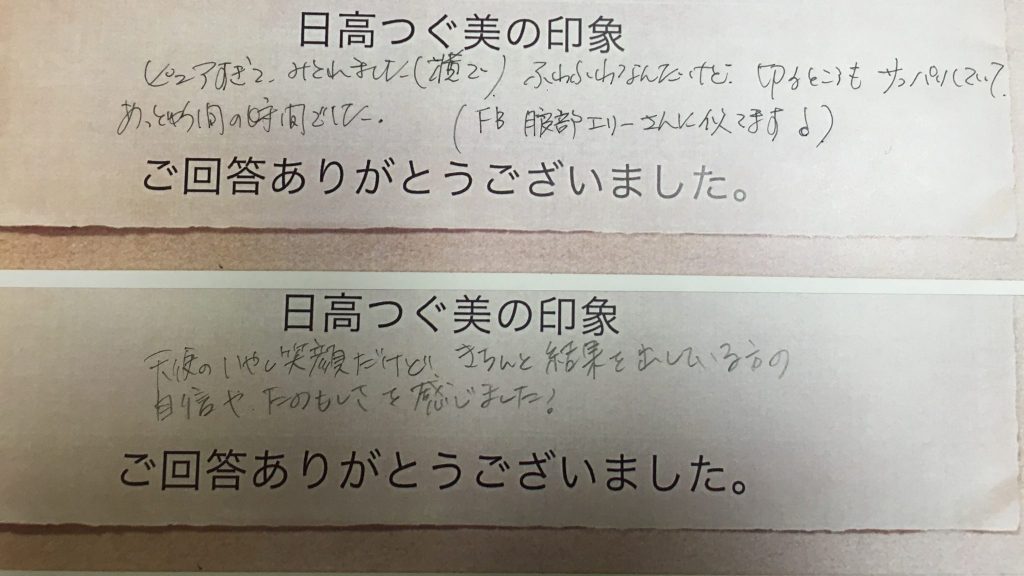 日高つぐ美の印象
ピュアすぎて、みとれました(横で) ふわふわなんだけど、切るところもサッパリしていて、
あっとゆう間の時間でした。 (FB 服部エリーさんに似てます♪)
ご回答ありがとうございました。
日高つぐ美の印象
天使のいやし笑顔だけど、きちんと結果を出している方の
自信や、たのもしさを感じました!
ご回答ありがとうございました。